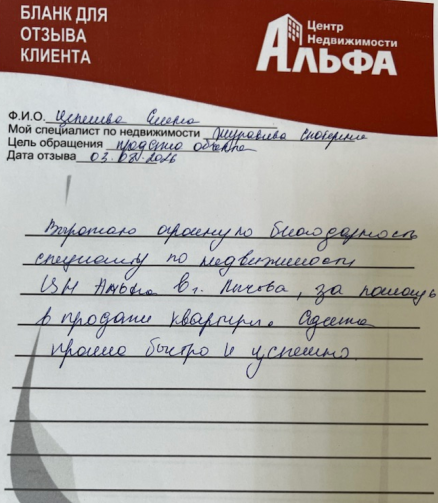 БЛАНК ДЛЯ
ОТЗЫВА
КЛИЕНТА
Центр
Недвижимости
АЛЬФА
Ф.И.О. Елена
Мой специалист по недвижимости Журавлева Екатерина
Цель обращения продажа объекта
Дата отзыва 03. 2026
Выражаю огромную благодарность
специалисту по недвижимости
ЦН Альфа в г. за помощь
в продаже квартиры. Сделка
прошла быстро и успешно.